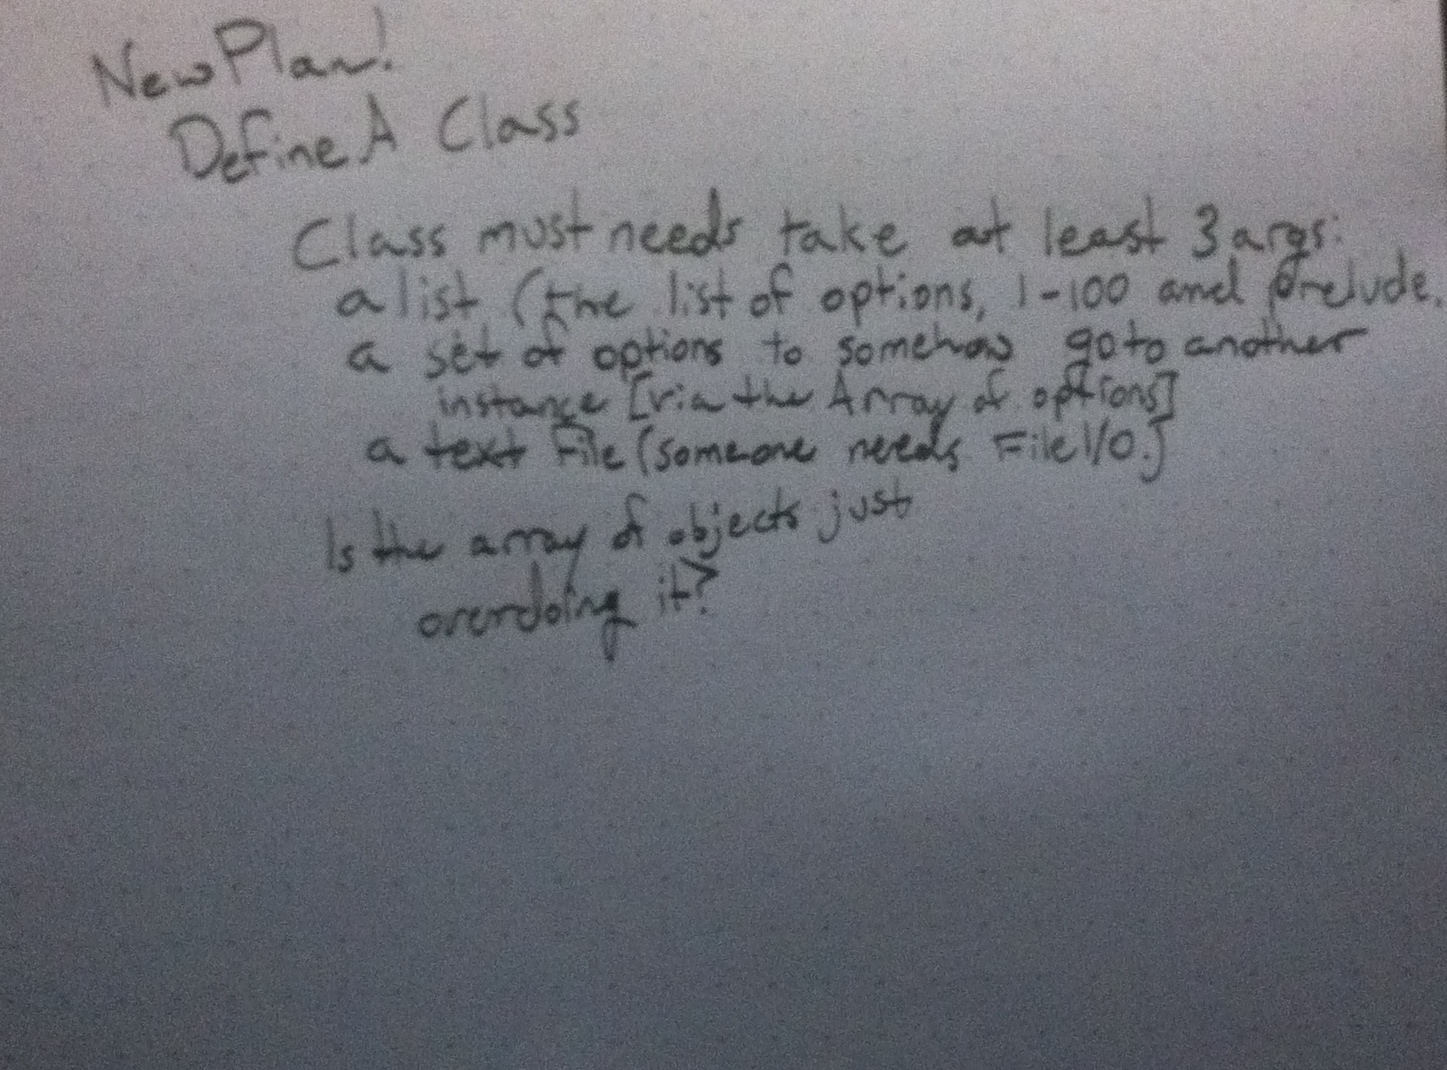 New Plan!
Define A Class
Class must needs take at least 3 args:
a list (the list of options, 1-100 and prelude.
a set of options to somehow go to another
instance [via the Array of options]
a text file (someone needs File I/O.]
Is the array of objects just
overdoing it?